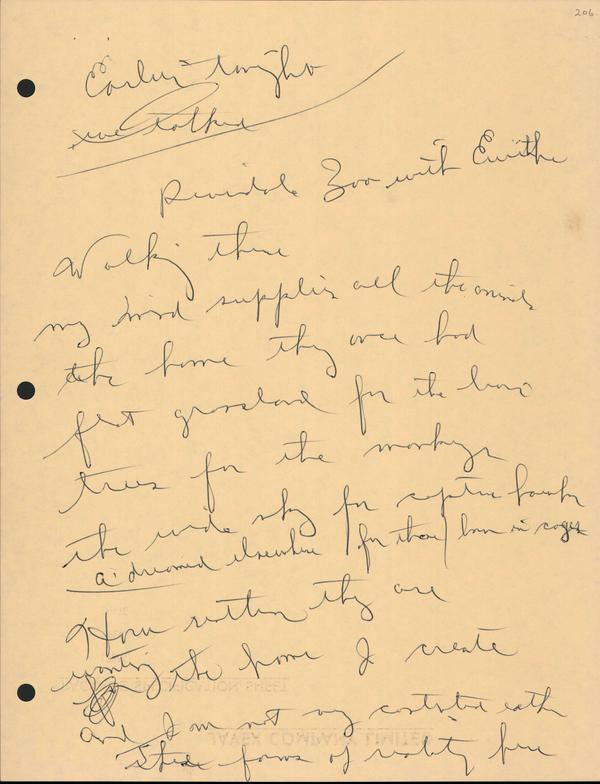 206
Earlier tonight
we talked
Riverdale Zoo with Eurithe
Walking there
my mind supplies all the animals
the home they once had
flat grassland for the lions
trees for the monkeys
the wide sky for captive hawks
a dreamed elsewhere for those born in cages
How restless they are
wanting the home I create
and I'm not my contented either
these forms of reality here